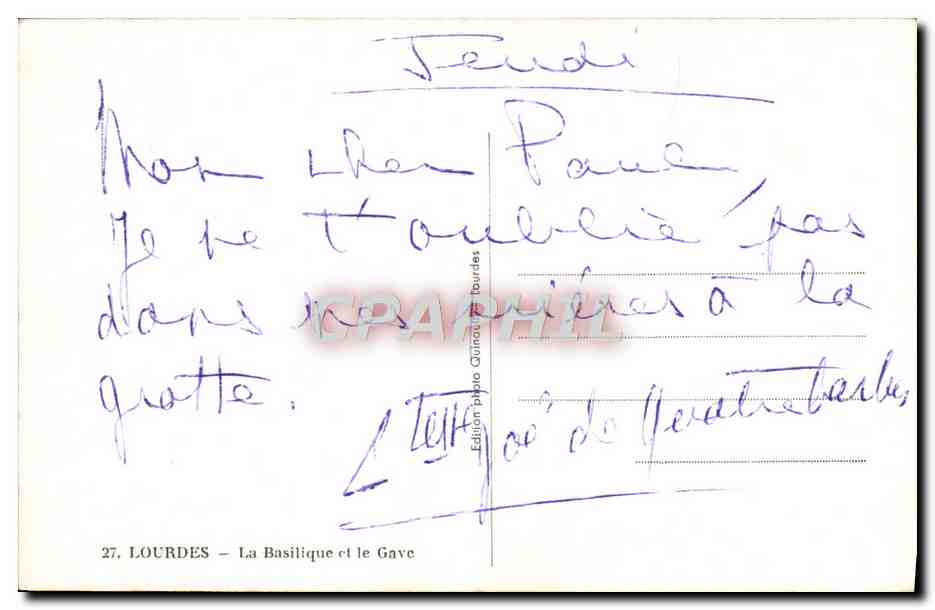 Jeudi
Mon cher Paul,
Je ne t'oublie pas
dans mes prières à la
grotte.
Ctesse de
27. LOURDES – La Basilique et le Gave
Edition photo Quinault Lourdes
CPAPHIL